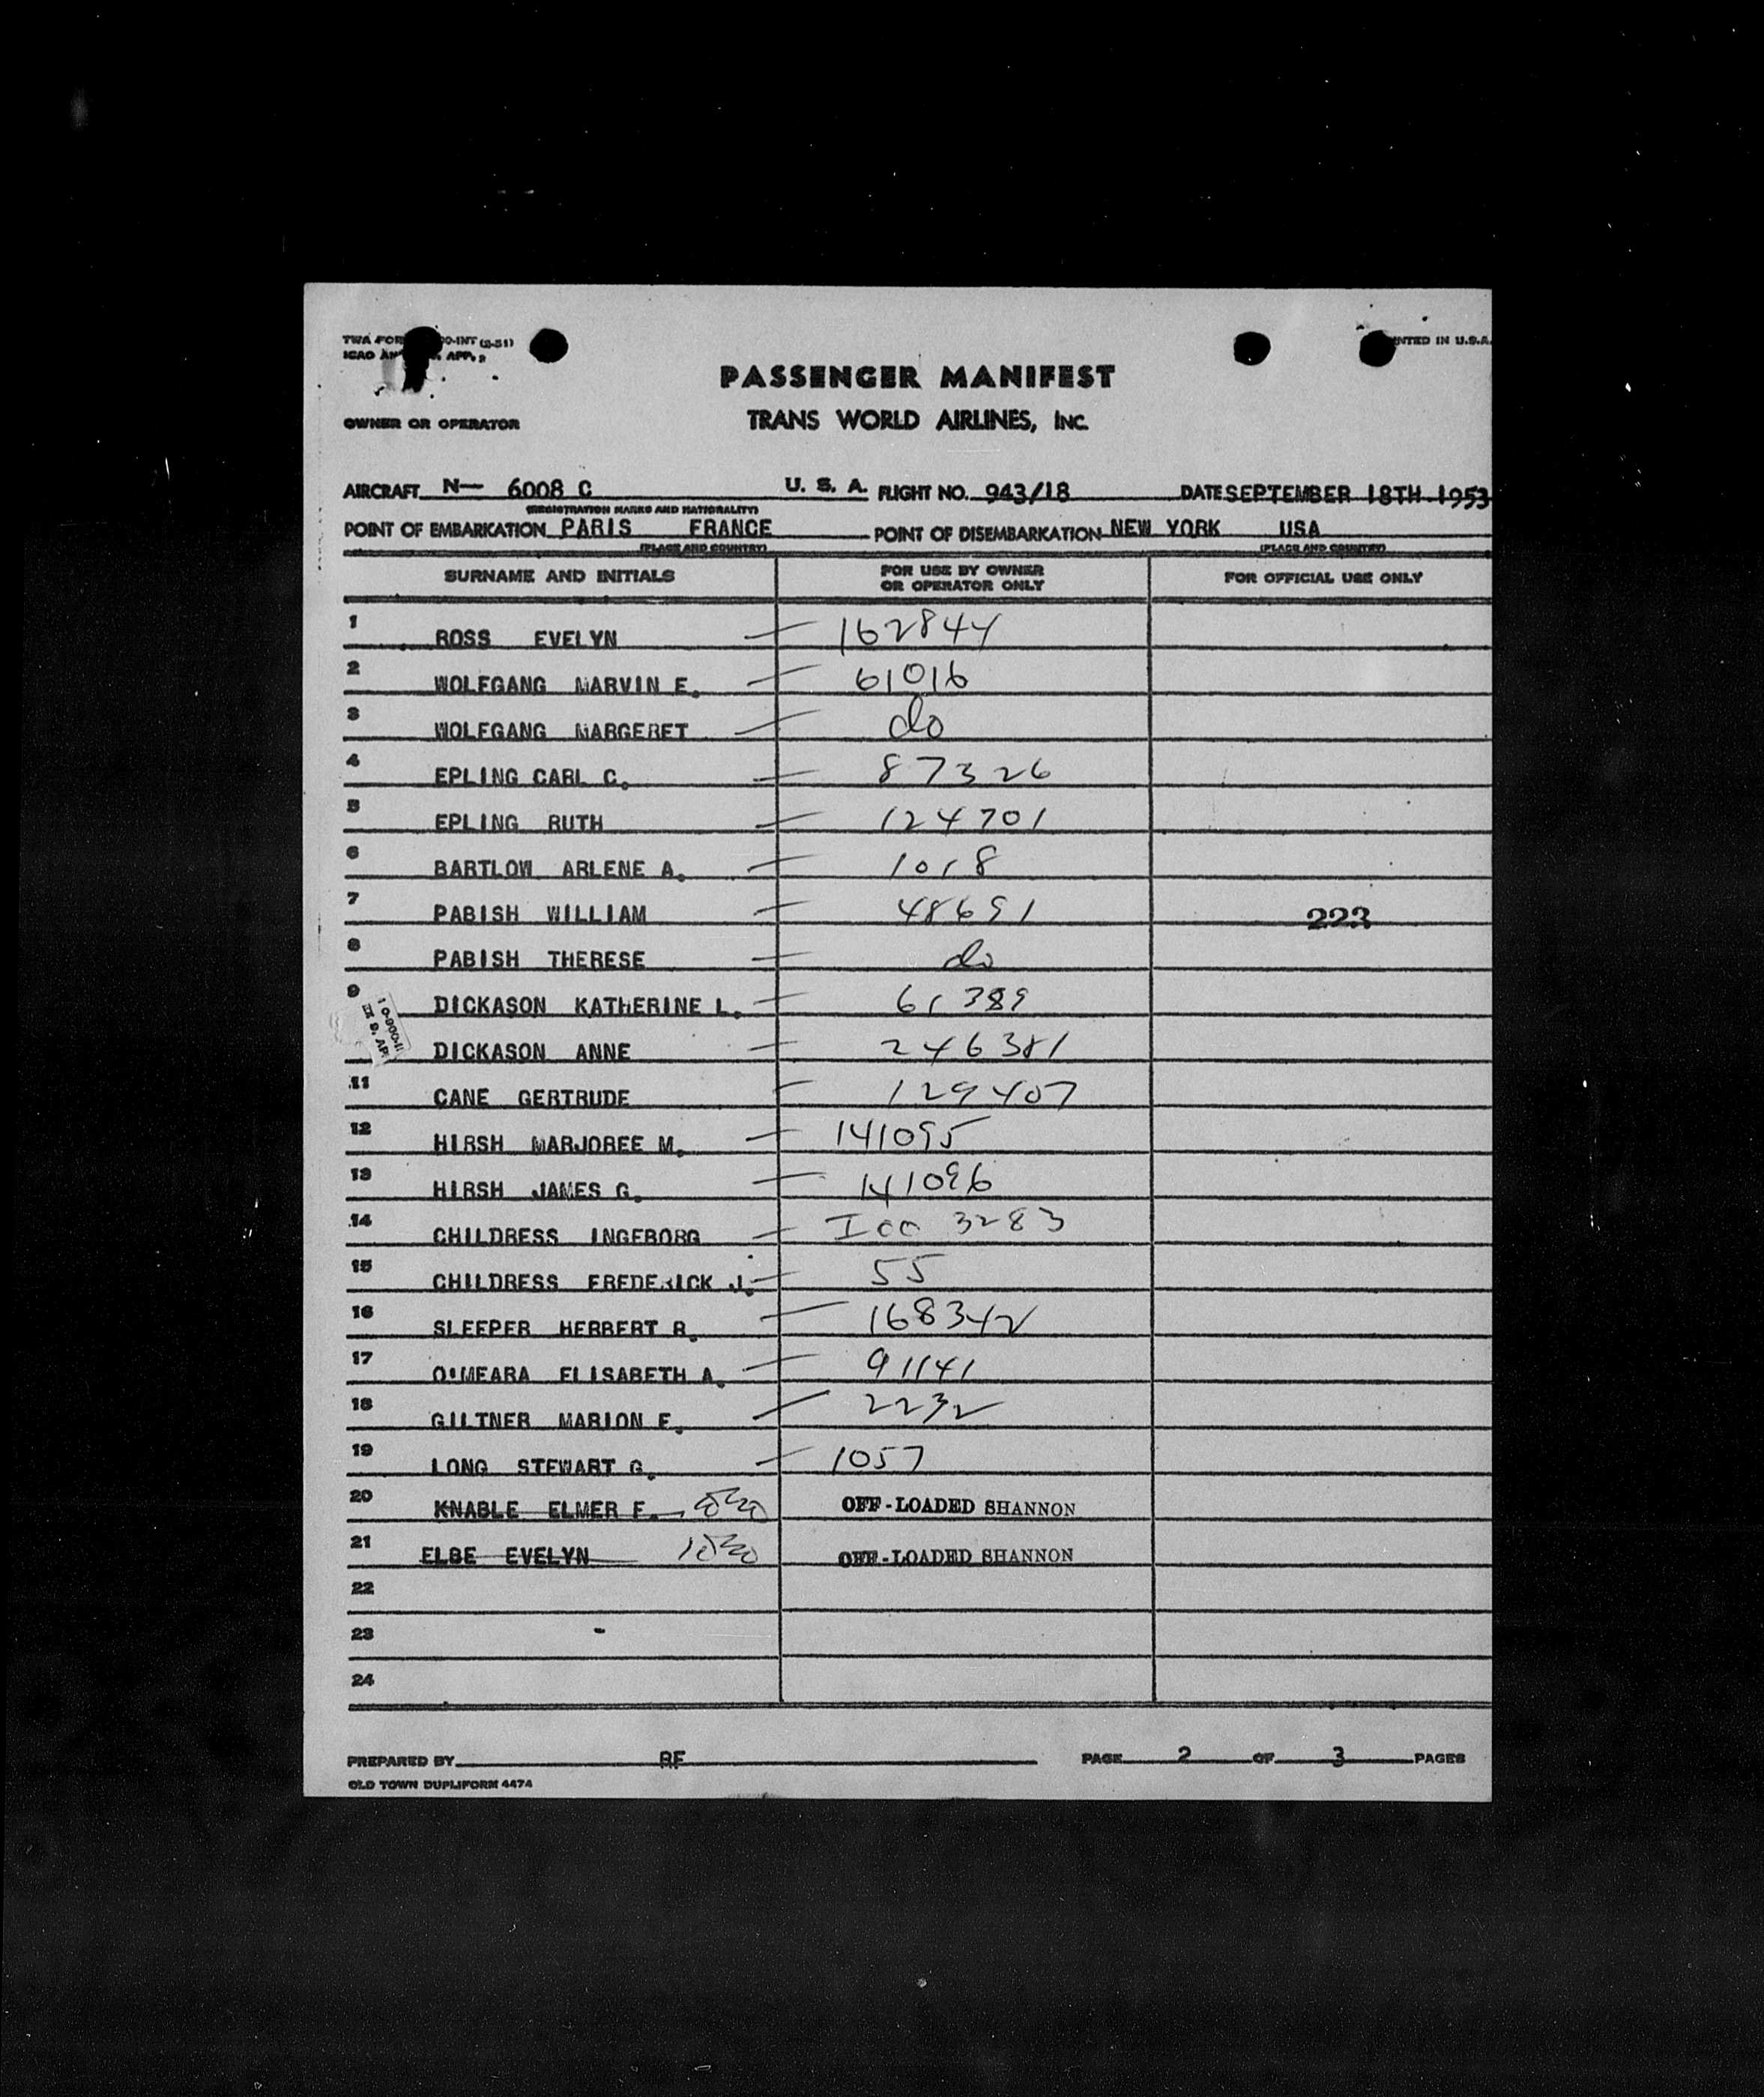 TWA FOR 0-INT (2-51)
ICAO AN APP. 9
NTED IN U.S.A.
PASSENGER MANIFEST
OWNER OR OPERATOR
TRANS WORLD AIRLINES, INC.
AIRCRAFT N— 6008 C U. S. A. FLIGHT NO. 943/18 DATE SEPTEMBER 18TH 1953
(REGISTRATION MARKS AND NATIONALITY)
POINT OF EMBARKATION PARIS FRANCE POINT OF DISEMBARKATION NEW YORK USA
(PLACE AND COUNTRY) (PLACE AND COUNTRY)
SURNAME AND INITIALS FOR USE BY OWNER OR OPERATOR ONLY FOR OFFICIAL USE ONLY
1 ROSS EVELYN — 162844
2 WOLFGANG MARVIN E. — 61016
3 WOLFGANG MARGERET — do
4 EPLING CARL C. — 87326
5 EPLING RUTH — 124701
6 BARTLOW ARLENE A. — 1018
7 PABISH WILLIAM — 48691 223
8 PABISH THERESE — do
9 DICKASON KATHERINE L. — 61389
DICKASON ANNE — 246381
11 CANE GERTRUDE — 129407
12 HIRSH MARJOREE M. — 141095
13 HIRSH JAMES G. — 141096
14 CHILDRESS INGEBORG — Icc 3283
15 CHILDRESS FREDERICK J. — 55
16 SLEEPER HERBERT R. — 168342
17 O'MEARA ELISABETH A. — 91141
18 GILTNER MARION E. — 2232
19 LONG STEWART G. — 1057
20 KNABLE ELMER F. OFF-LOADED SHANNON
21 ELBE EVELYN OFF-LOADED SHANNON
22
23
24
PREPARED BY RF PAGE 2 OF 3 PAGES
OLD TOWN DUPLIFORM 4474